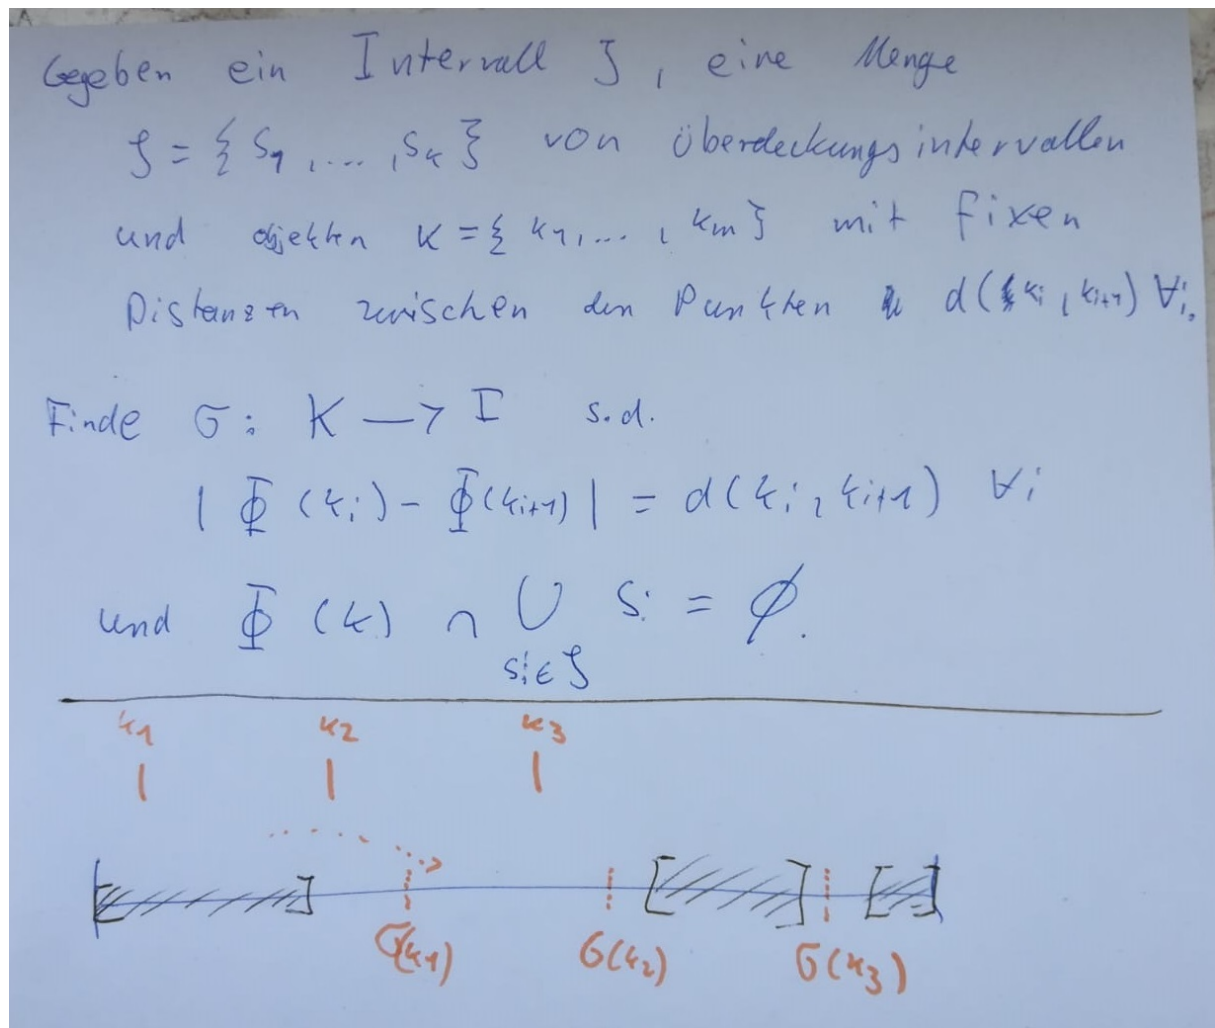 Gegeben ein Intervall I, eine Menge
S = {S1, ...., Sk} von Überdeckungsintervallen
und objekten K = {k1, ... , km} mit fixen
Distanzen zwischen den Punkten d(ki, ki+1) ∀i.
Finde σ: K → I s.d.
|Φ(ki) - Φ(ki+1)| = d(ki, ki+1) ∀i
und Φ(k) ∩ ∪ Si = ∅.
Si ∈ S
k1 k2 k3
σ(k1) σ(k2) σ(k3)